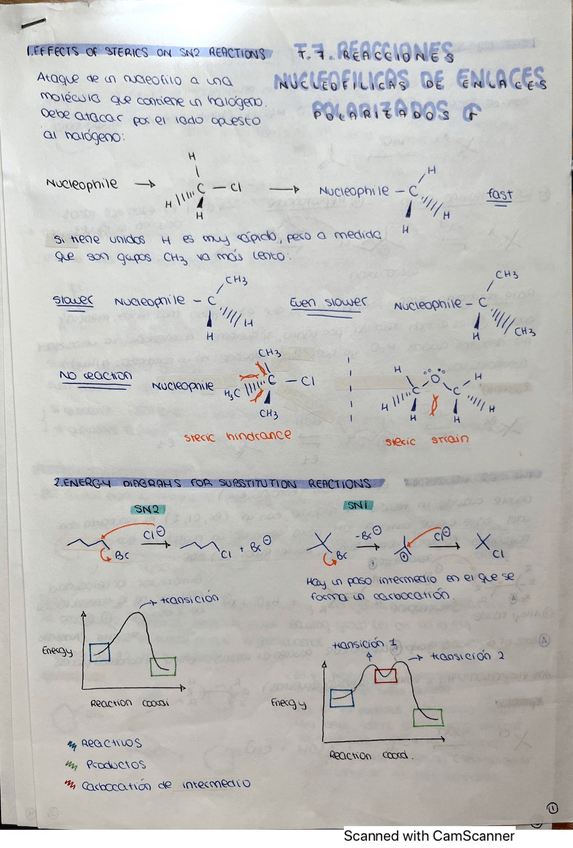 1. EFFECTS OF STERICS ON SN2 REACTIONS
T.7. REACCIONES
NUCLEOFILICAS DE ENLACES
POLARIZADOS
Ataque de un nucleofilo a una
molécula que contiene un halógeno.
Debe atacar por el lado opuesto
al halógeno:
H
Nucleophile → C - Cl → Nucleophile - C H fast
H H
H H
Si tiene unidos H es muy rápido, pero a medida
que son grupos CH3 va más lento:
CH3 CH3
slower Nucleophile - C Even slower Nucleophile - C
H H
H CH3
NO reaction Nucleophile H3C C - Cl
CH3
CH3
H O H
C C
H H H H
steric hindrance steric strain
2. ENERGY DIAGRAMS FOR SUBSTITUTION REACTIONS
SN2 SN1
Br Cl⊖ → Cl + Br⊖
Br -Br⊖ → ⊕ Cl⊖ → Cl
Hay un paso intermedio en el que se
forma un carbocatión
transición
Energy
Reaction coord.
transición 1
transición 2
Energy
Reaction coord.
Reactivos
Productos
Carbocatión de intermedio
1
Scanned with CamScanner